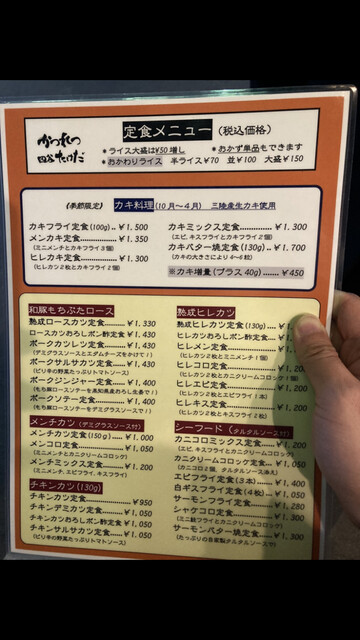 かつれつ
四谷たけだ
定食メニュー (税込価格)
*ライス大盛は¥50増し *おかず単品もできます
*おかわりライス 半ライス¥70 並¥100 大盛¥150
(季節限定) カキ料理(10月〜4月) 三陸産生カキ使用
カキフライ定食(100g)..¥1,500
メンカキ定食..........¥1,350
(ミニメンチとカキフライ3個)
ヒレカキ定食..........¥1,300
(ヒレカツ2枚とカキフライ2個)
カキミックス定食..............¥1,300
(エビ、キスフライとカキフライ2個)
カキバター焼定食(130g)...¥1,700
(カキの大きさにより4〜6粒)
※カキ増量(プラス40g).......¥450
和豚もちぶたロース
熟成ロースカツ定食............¥1,330
ロースカツおろしポン酢定食 ¥1,430
ポークカツレツ定食............¥1,430
(デミグラスソースとエダムチーズをかけて!)
ポークサルサカツ定食........¥1,430
(ピリ辛の野菜たっぷりトマトソース)
ポークジンジャー定食........¥1,400
(もち豚ロースソテーを高知県産おろし生姜で!)
ポークソテー定食..............¥1,400
(もち豚ロースソテーをデミグラスソースで!)
メンチカツ (デミグラスソース付)
メンチカツ定食(150g)......¥1,000
メンコロ定食....................¥1,050
(ミニメンチとカニクリームコロッケ)
メンチミックス定食............¥1,200
(ミニメンチ、エビフライとカニクリームコロッケ)
チキンカツ(130g)
チキンカツ定食..................¥950
チキンデミカツ定食............¥1,050
チキンカツおろしポン酢定食 ¥1,050
チキンサルサカツ定食........¥1,050
(ピリ辛の野菜たっぷりトマトソース)
熟成ヒレカツ
熟成ヒレカツ定食(130g)....¥1,
ヒレカツおろしポン酢定食...¥
ヒレメン定食
(ヒレカツ2枚とミニメンチ1個)
ヒレコロ定食
(ヒレカツ2枚とカニクリームコロッケ1個)
ヒレエビ定食
(ヒレカツ2枚とエビフライ1本)
ヒレキス定食
(ヒレカツ2枚とキスフライ2枚)
シーフード (タルタルソース付)
カニコロミックス定食..........¥1,200
(エビ、キスフライとカニクリームコロッケ)
カニクリームコロッケ定食...¥1,050
(カニコロ2個、タルタル・トマトソース添え)
エビフライ定食(3本)..........¥1,400
白ギスフライ定食(4枚).......¥1,050
サーモンフライ定食............¥1,280
シャケコロ定食..................¥1,300
(ミニ鮭フライとカニクリームコロッケ)
サーモンバター焼定食........¥1,300
(たっぷりの自家製タルタルソースで)